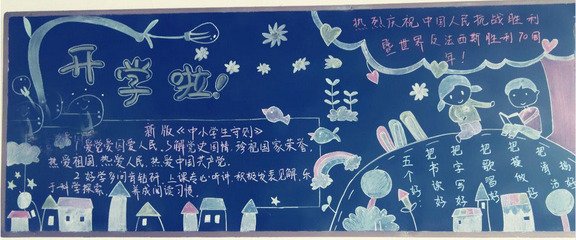 开学啦!
新版《中小学生守则》
1 爱党爱国爱人民。了解党史国情,珍视国家荣誉,
热爱祖国,热爱人民,热爱中国共产党。
2 好学多问肯钻研。上课专心听讲,积极发表见解,乐
于科学探索,养成阅读习惯。
热烈庆祝中国人民抗战胜利
暨世界反法西斯胜利70周
年!
把 好
把操做好
把歌唱好
把字写好
把书读好
五个好